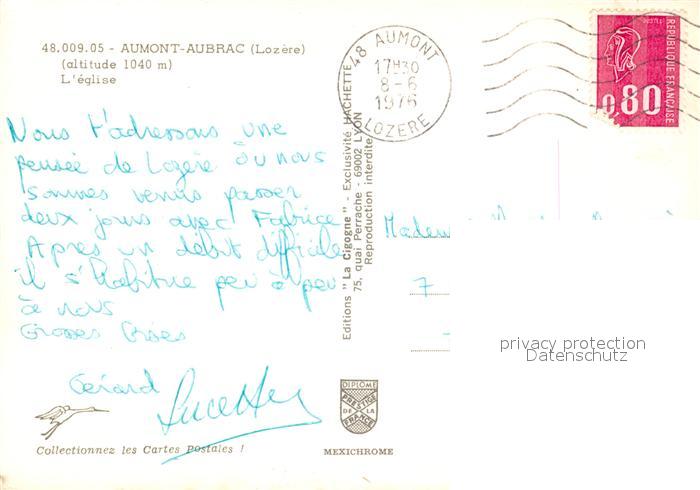 48.009.05 - AUMONT-AUBRAC (Lozère)
(altitude 1040 m)
L'église
48 AUMONT
17H30
8-6
1976
LOZERE
REPUBLIQUE FRANÇAISE
0,80
Nous t'adressons une
pensée de Lozère où nous
sommes venus passer
deux jours avec Fabrice
Après un début difficile
il s'habitue peu à peu
à nous
Grosses Bises
Gérard
Lucette
Editions "La Cigogne" - Exclusivité HACHETTE
75, quai Perrache - 69002 LYON
Reproduction interdite
7
privacy protection
Datenschutz
DIPLOME
PRESTIGE
DE LA
FRANCE
Collectionnez les Cartes Postales !
MEXICHROME